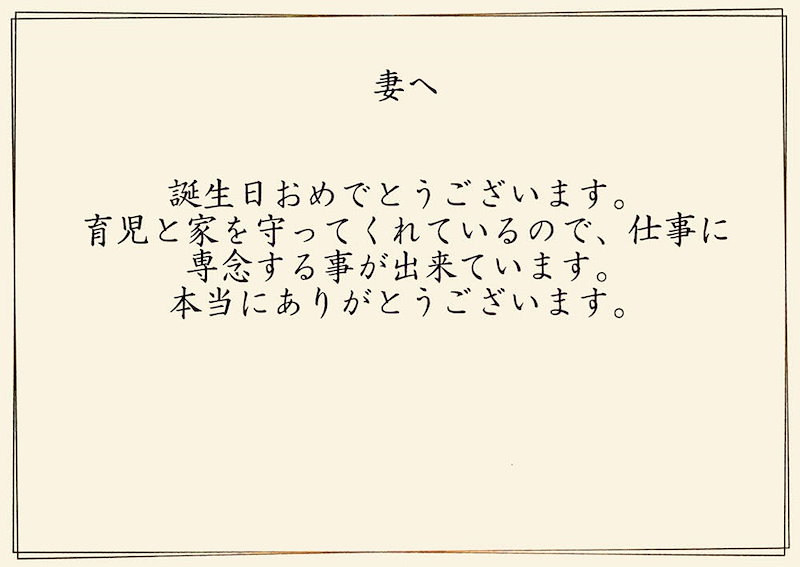 妻へ
誕生日おめでとうございます。
育児と家を守ってくれているので、仕事に
専念する事が出来ています。
本当にありがとうございます。